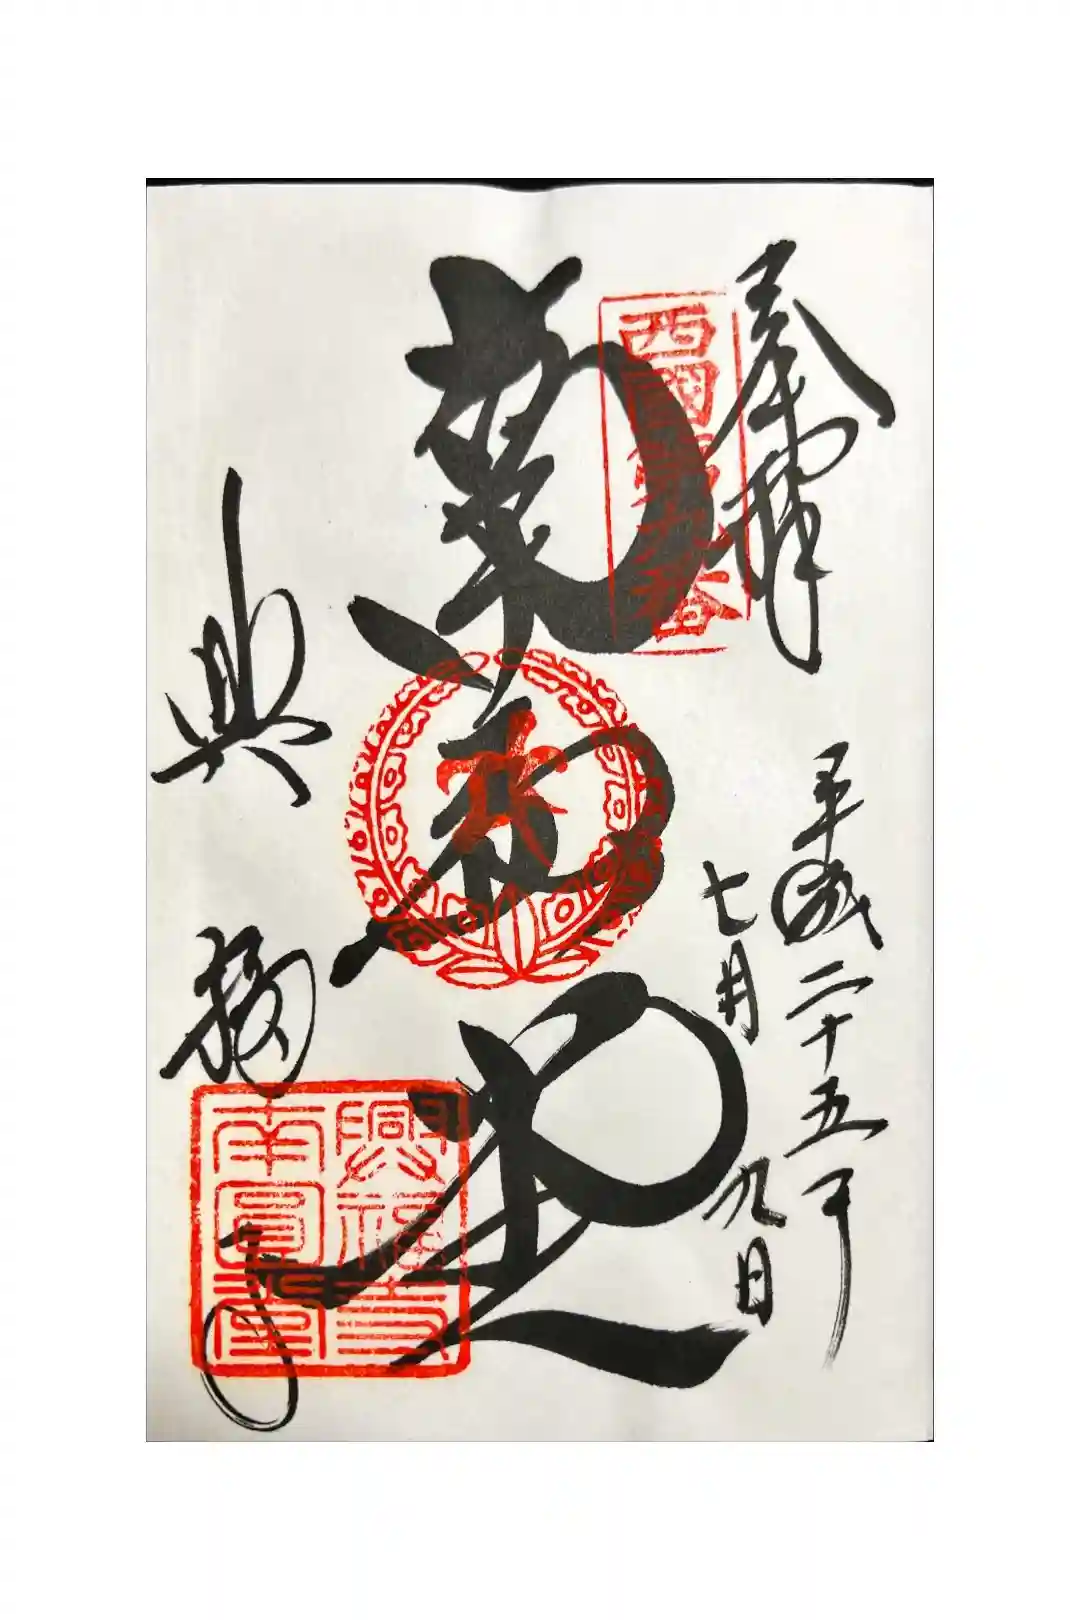 奉拝
平成二十五年
七月九日
西國第九番
興福寺
興福寺
南圓堂